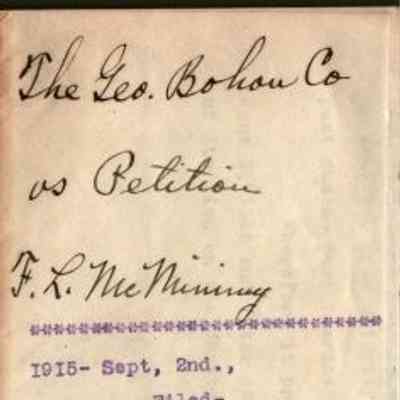 The Geo. Bohon Co
vs Petition
F. L. McMininy
************************************
1915- Sept, 2nd.,
Filed-